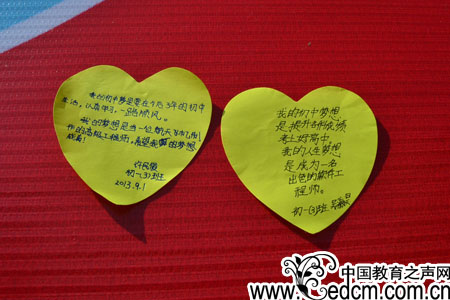 我的初中梦是要在个月3年的初中
生活，认真学习，一路顺风。
我的梦想是当一位航天飞机制
作的高级工程师，希望我的梦想
成真！
初一(3)班
2013.9.1
我的初中梦想
是提升各科成绩
考上好高中
我的人生梦想
是成为一名
出色的软件工
程师。
初一(3)班
中国教育之声网
www.edcm.com.cn